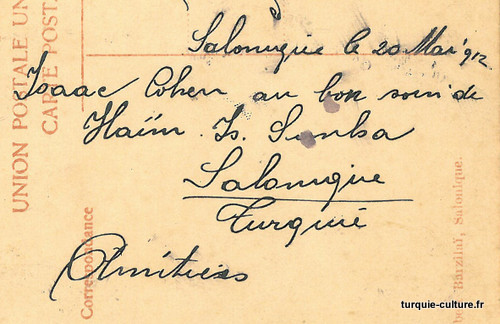 Salonique le 20 Mai 912
Isaac Cohen au bon soin de
Haïm Is. Simha
Salonique
Turquie
Amitiées
UNION POSTALE UN
CARTE POST
Correspondance
Barzilaï, Salonique.
turquie-culture.fr